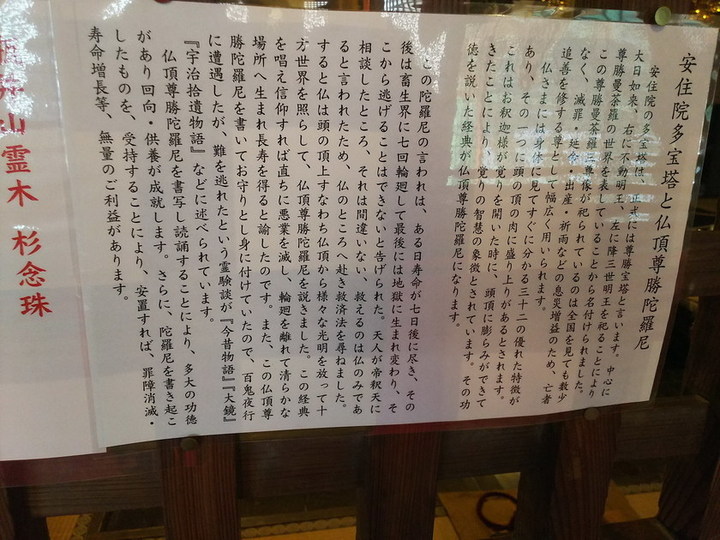 安住院多宝塔と仏頂尊勝陀羅尼
安住院の多宝塔は、正式には尊勝宝塔と言います。中心に
大日如来、右に不動明王、左に降三世明王を祀ることにより
尊勝曼荼羅の世界を表していることから名付けられました。
この尊勝曼荼羅三尊像が祀られているのは全国を見ても数少
なく、滅罪・延命・出産・祈雨などの息災増益のため、亡者
追善を修する尊として幅広く用いられます。
仏さまには身体に見てすぐに分かる三十二の優れた特徴が
あり、その一つに頭の頂の肉に盛り上りがあるとされます。
これはお釈迦様が覚りを開いた時に、頭頂に膨らみができて
きたことにより、覚りの智慧の象徴とされています。その功
徳を説いた経典が仏頂尊勝陀羅尼になります。
この陀羅尼の言われは、ある日寿命が七日後に尽き、その
後は畜生界に七回輪廻して最後には地獄に生まれ変わり、そ
こから逃げることはできないと告げられた。天人が帝釈天に
相談したところ、それは間違いない、救えるのは仏のみであ
ると言われたため、仏のところへ赴き救済法を尋ねました。
すると仏は頭の頂上すなわち仏頂から様々な光明を放って十
方世界を照らして、仏頂尊勝陀羅尼を説きました。この経典
を唱え信仰すれば直ちに悪業を滅し、輪廻を離れて清らかな
場所へ生まれ長寿を得ると諭したのです。また、この仏頂尊
勝陀羅尼を書いてお守りとし身に付けていたので、百鬼夜行
に遭遇したが、難を逃れたという霊験談が『今昔物語』『大鏡』
『宇治拾遺物語』などに述べられています。
仏頂尊勝陀羅尼を書写し読誦することにより、多大の功徳
があり回向・供養が成就します。さらに、陀羅尼を書き起こ
したものを、受持することにより、安置すれば、罪障消滅・
寿命増長等、無量のご利益があります。
山霊木 杉念珠